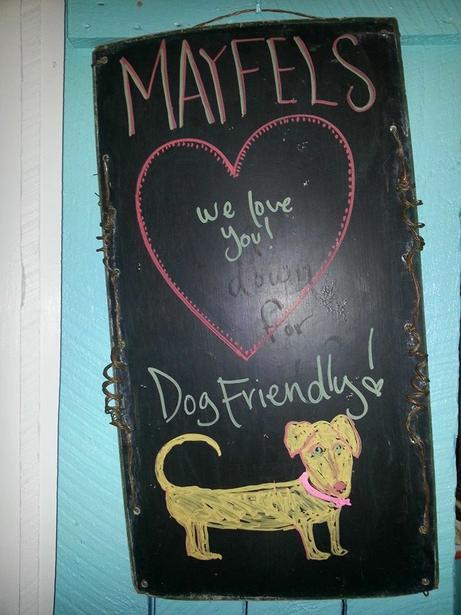 MAYFELS
we love
you!
down
for
Dog Friendly!